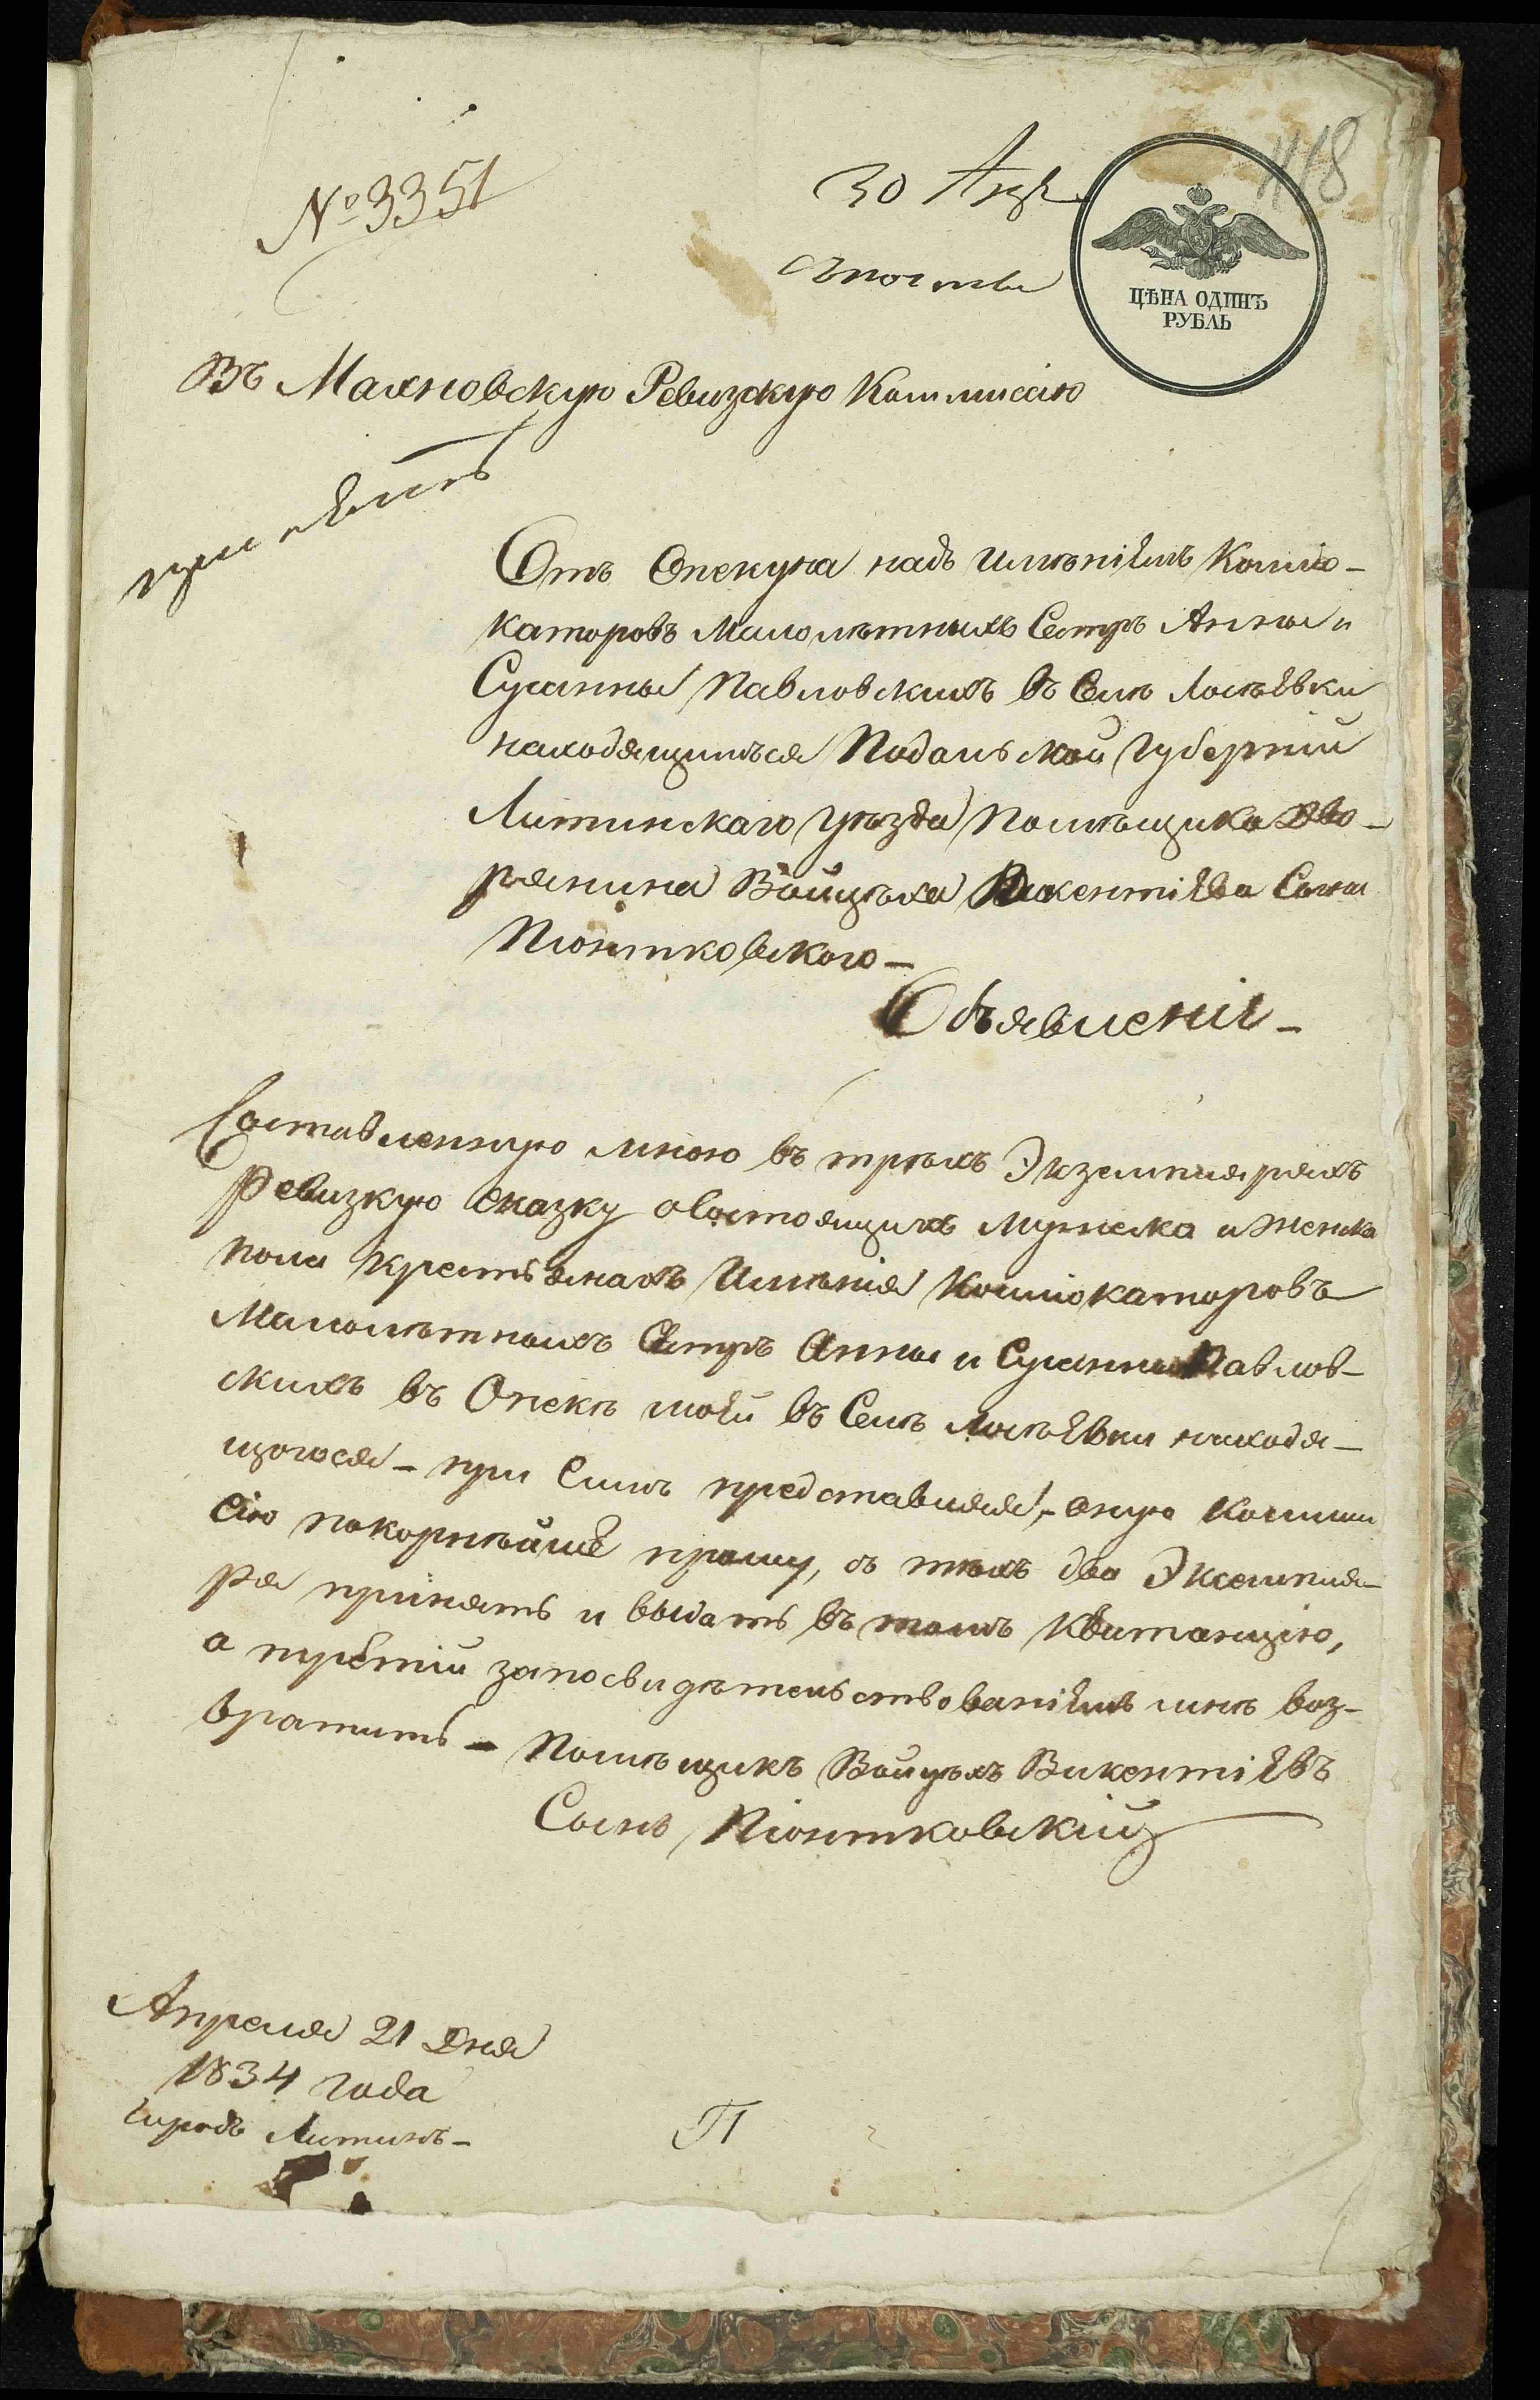 418
№ 3351
30 Апр
съ почты
ЦѢНА ОДИНЪ
РУБЛЬ
Въ Махновскую Ревизскую Коммисiю
Отъ Опекуна надъ имѣнiемъ Коллiо-
каторовъ Малолѣтныхъ Сестръ Анны и
Сузанны Павловскихъ въ Селѣ
находящимься Подольской Губернiи
Литинскаго уѣзда Помѣщика Дво-
рянина Войцѣха Викентiева Сына
Пiонтковского –
Объявленiе –
Составленную мною въ трехъ Экземплярахъ
Ревизкую Сказку о Состоящихъ мужеска и женска
пола крестьянахъ Имѣнiя Коллiокаторовъ
Малолѣтныхъ Сестръ Анны и Сузанны Павлов-
скихъ въ Опекѣ моей въ Селѣ находя-
щогося – при Симъ представляя, – оную Комми
сiю покорнѣйше прошу, съ тѣхъ два Эксемпля-
ра принять и выдать въ томъ Квитанцiю,
а третiй запосвидѣтельствованiемъ мнѣ воз-
вратить – Помѣщикъ Войцѣхъ Викентiевъ
Сынъ Пiонтковскiй
Апреля 21 Дня
1834 года
городъ Литинъ –
П